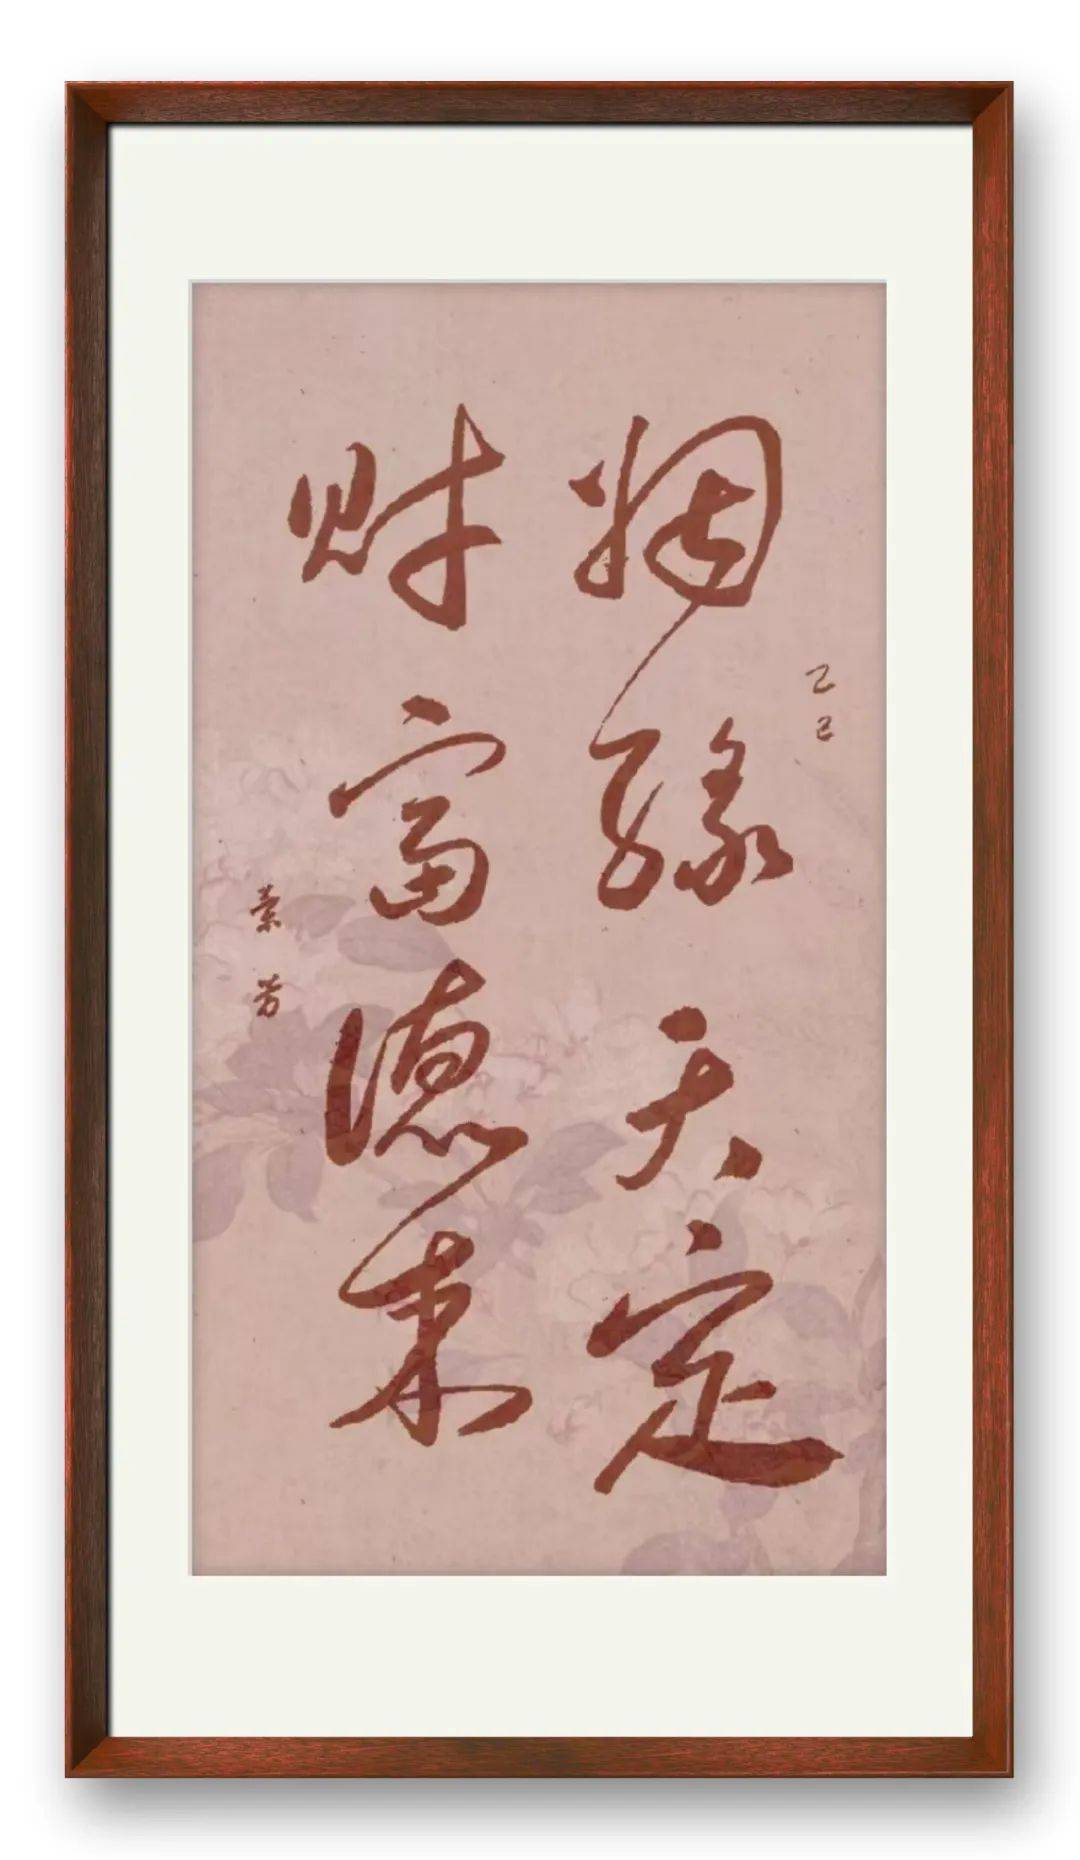 乙巳
姻缘天定
财富德来
素芳